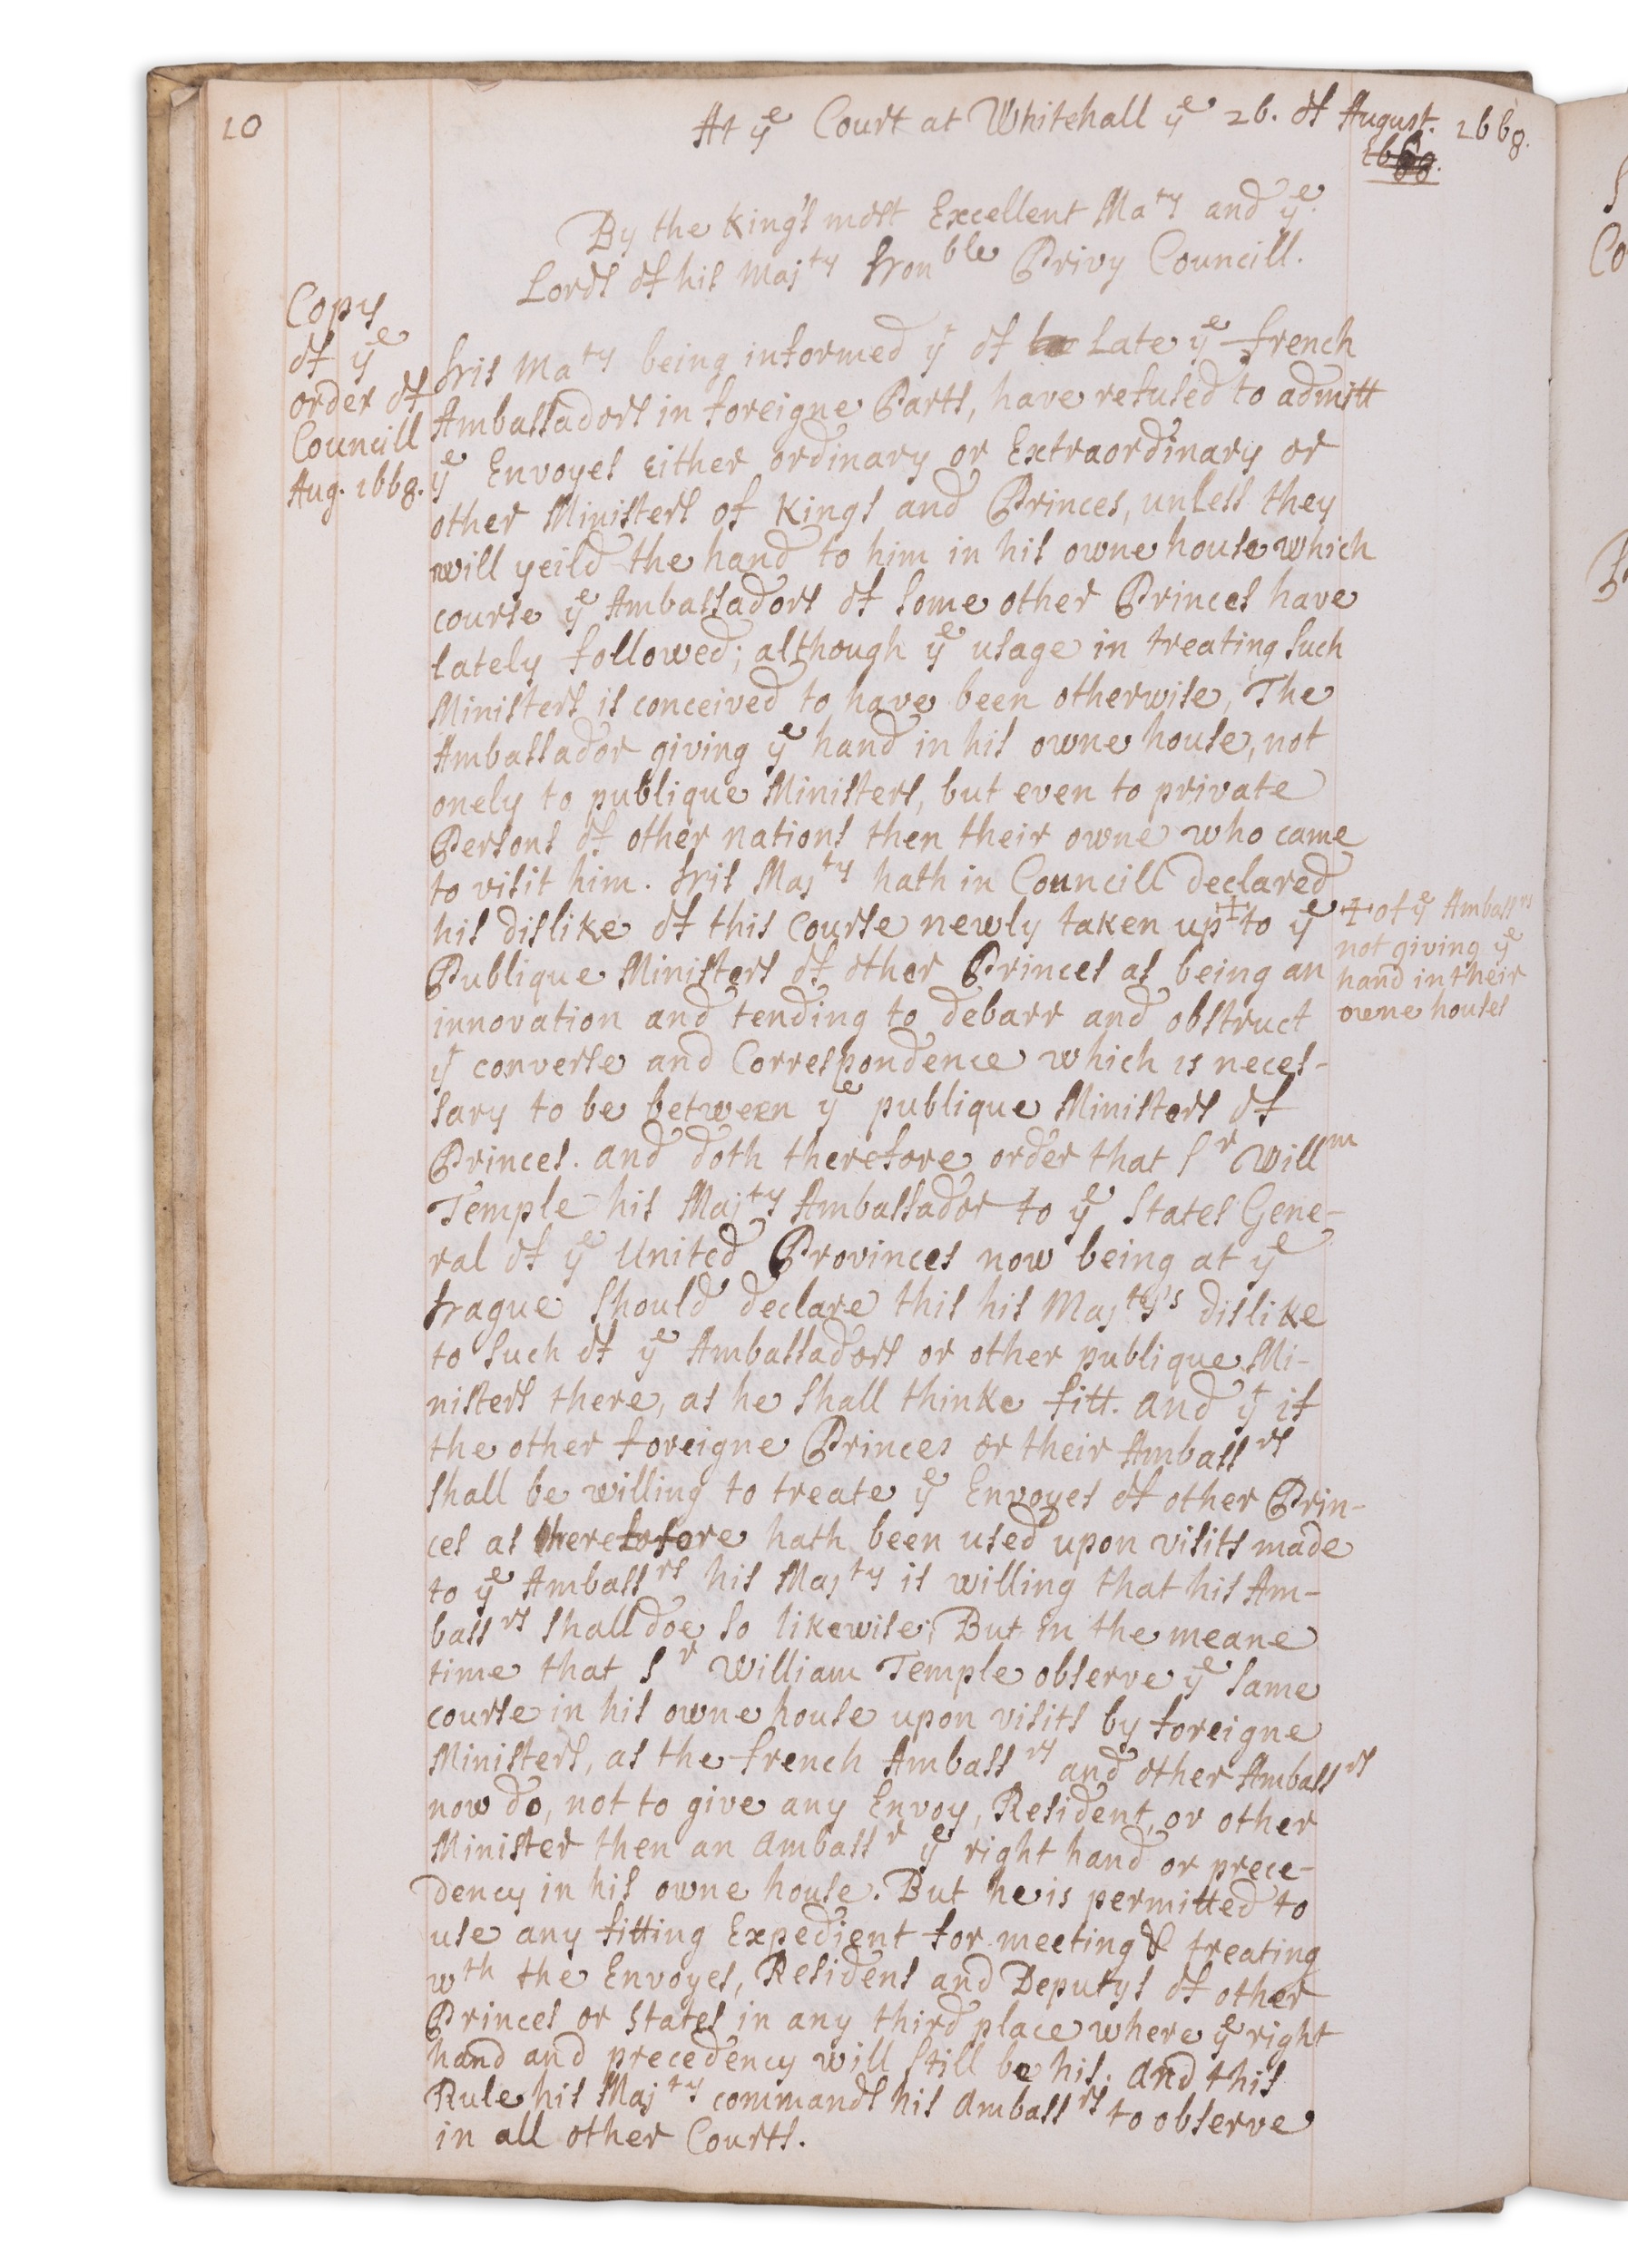 10
At ye Court at Whitehall ye 26. of August. 1668.
1668.
By the King's most Excellent Maty and ye
Lords of his Majty Honble Privy Councill.
Copy
of ye
order of
Councill
Aug. 1668.
His Maty being informed yt of Late ye French
Ambassadors in foreigne Parts, have refused to admitt
ye Envoyes either ordinary or Extraordinary or
other Ministers of Kings and Princes, unless they
will yeild the hand to him in his owne house which
course ye Ambassadors of some other Princes have
lately followed; although ye usage in treating such
Ministers is conceived to have been otherwise, The
Ambassador giving ye hand in his owne house, not
onely to publique Ministers, but even to private
Persons of other nations then their owne who came
to visit him. His Majty hath in Councill declared
his dislike of this Course newly taken up + to ye
Publique Ministers of other Princes as being an
innovation and tending to debarr and obstruct
yt converse and Correspondence which is neces-
sary to be between ye publique Ministers of
Princes. and doth therefore order that Sr Willm
Temple his Majtys Ambassador to ye States Gene-
ral of ye United Provinces now being at ye
Hague should declare this his Majty's dislike
to such of ye Ambassadors or other publique Mi-
nisters there, as he shall thinke fitt. and yt if
the other foreigne Princes or their Ambassrs
shall be willing to treate ye Envoyes of other Prin-
ces as heretofore hath been used upon visits made
to ye Ambassrs his Majty is willing that his Am-
bassrs shall doe so likewise; But in the meane
time that Sr William Temple observe ye same
course in his owne house upon visits by foreigne
Ministers, as the French Ambassrs and other Ambassrs
now do, not to give any Envoy, Resident, or other
Minister then an Ambassr ye right hand or prece-
dency in his owne house. But he is permitted to
use any fitting Expedient for meeting & treating
wth the Envoyes, Residens and Deputys of other
Princes or States in any third place where ye right
hand and precedency will still be his. and this
Rule his Majty commands his Ambassrs to observe
in all other Courts.
+ of ye Ambassrs
not giving ye
hand in their
owne houses